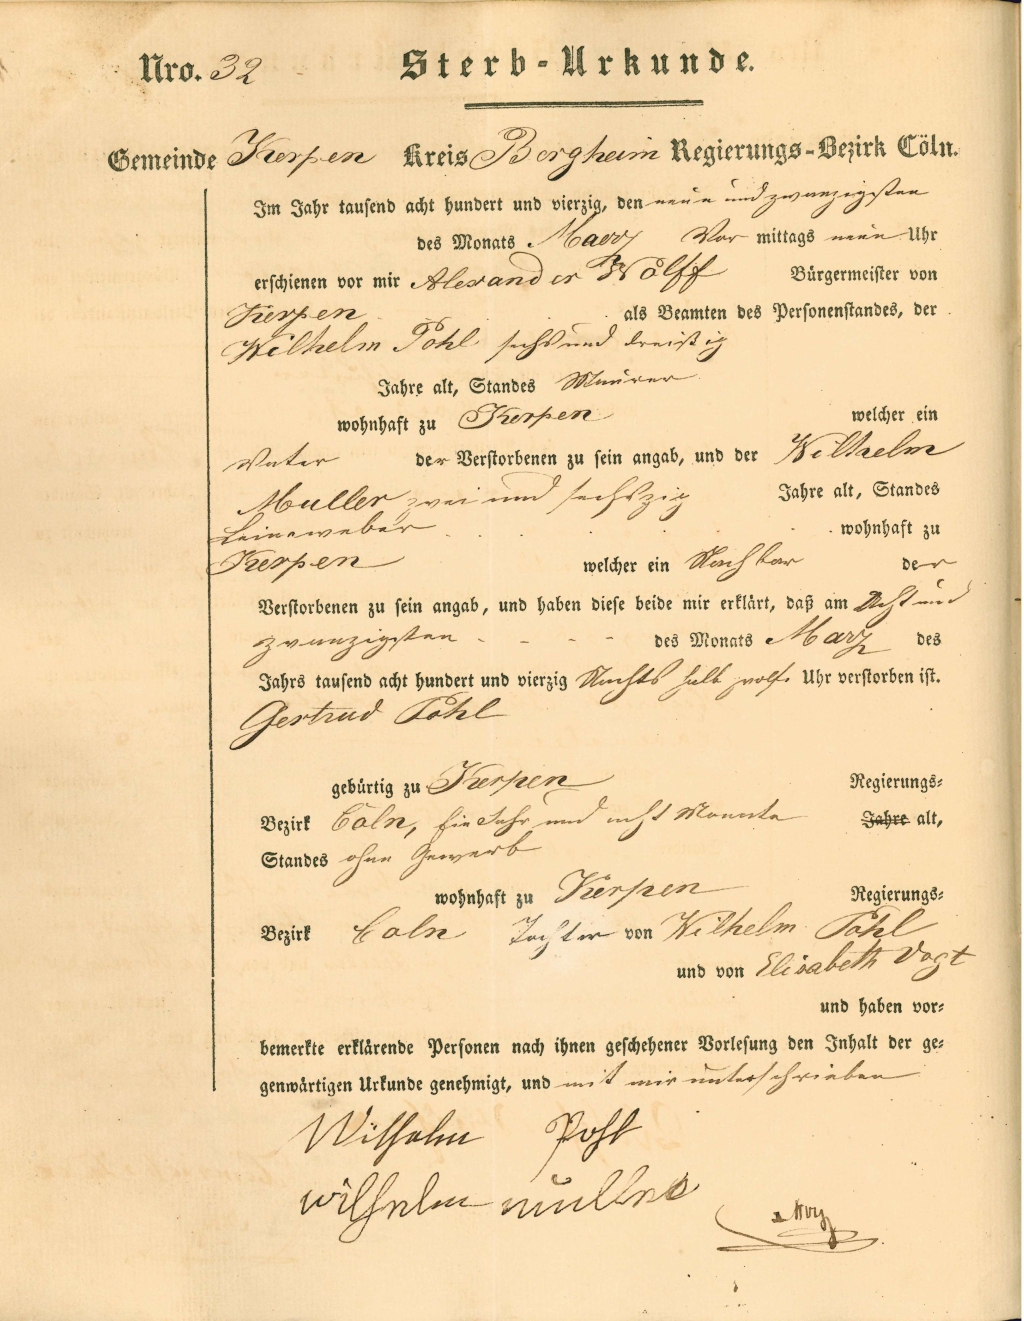 Nro. 32 Sterb-Urkunde.
Gemeinde Kerpen Kreis Bergheim Regierungs-Bezirk Cöln.
Im Jahr tausend acht hundert und vierzig, den neun und zwanzigsten
des Monats Maerz Vor mittags neun Uhr
erschienen vor mir Alexander Wolff Bürgermeister von
Kerpen als Beamten des Personenstandes, der
Wilhelm Pohl sechs und dreißig
Jahre alt, Standes Maurer
wohnhaft zu Kerpen welcher ein
Vater der Verstorbenen zu sein angab, und der Wilhelm
Muller zwei und sechszig Jahre alt, Standes
Leineweber wohnhaft zu
Kerpen welcher ein Nachbar der
Verstorbenen zu sein angab, und haben diese beide mir erklärt, daß am Acht und
zwanzigsten - - - - des Monats Marz des
Jahrs tausend acht hundert und vierzig Nachts halb zwolf Uhr verstorben ist.
Gertrud Pohl
gebürtig zu Kerpen Regierungs-
Bezirk Cöln, Ein Jahr und acht Monate Jahre alt,
Standes ohne Gewerb
wohnhaft zu Kerpen Regierungs-
Bezirk Coln Tochter von Wilhelm Pohl
und von Elisabeth Vogt
und haben vor-
bemerkte erklärende Personen nach ihnen geschehener Vorlesung den Inhalt der ge-
genwärtigen Urkunde genehmigt, und mit mir unterschrieben
Wilhelm Pohl
wilhelm muller